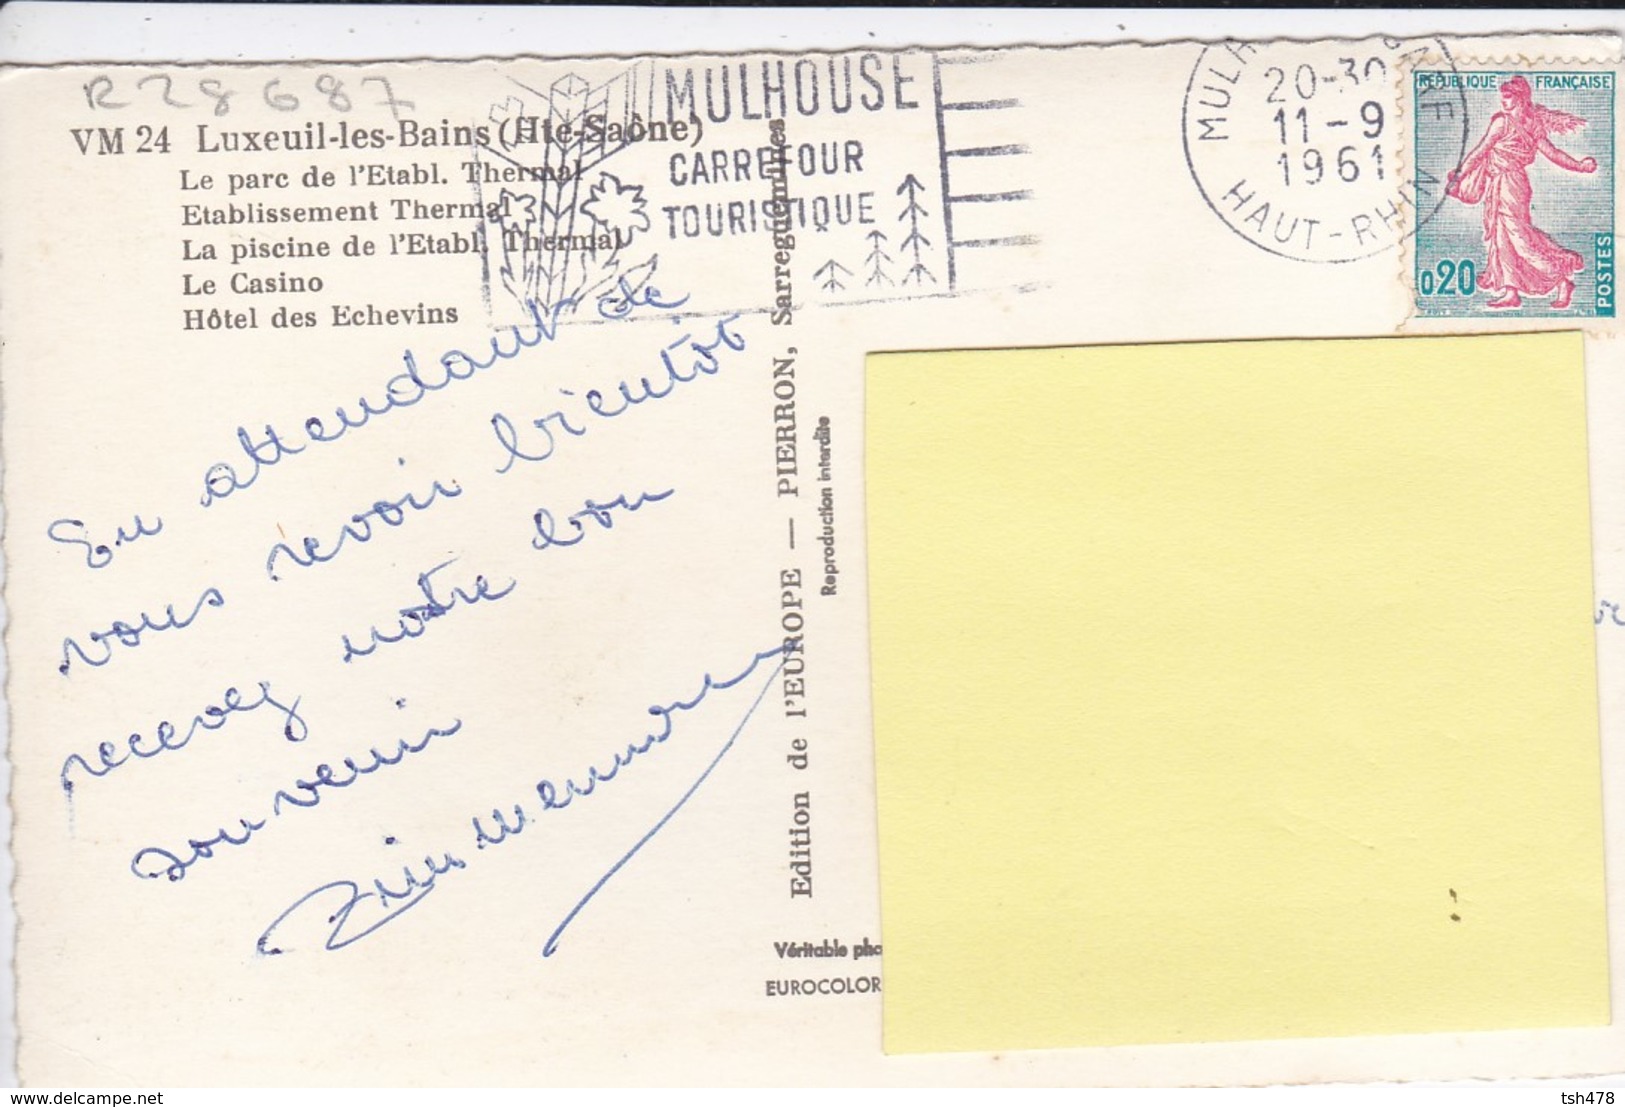 R28687
VM 24 Luxeuil-les-Bains (Hte-Saône)
Le parc de l'Etabl. Thermal
Etablissement Thermal
La piscine de l'Etabl. Thermal
Le Casino
Hôtel des Echevins
MULHOUSE
CARREFOUR
TOURISTIQUE
20-30
11-9
1961
HAUT-RHIN
REPUBLIQUE FRANÇAISE
0,20
POSTES
En attendant de
vous revoir bientôt
recevez notre bon
souvenir
Zimmermann
Edition de l'EUROPE — PIERRON, Sarreguemines
Reproduction interdite
Véritable
EUROCOLOR
www.delcampe.net
tsh478